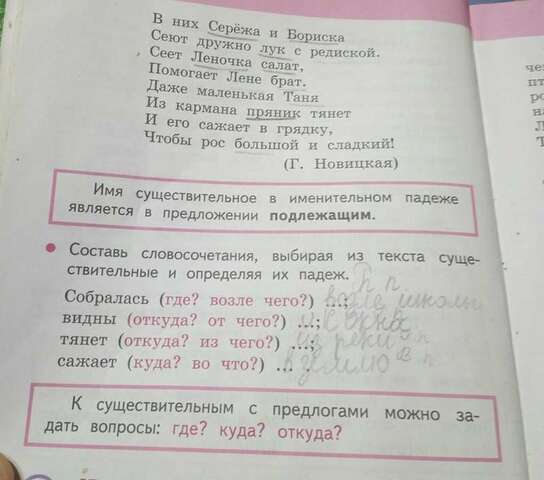 В них Серёжа и Бориска
Сеют дружно лук с редиской.
Сеет Леночка салат,
Помогает Лене брат.
Даже маленькая Таня
Из кармана пряник тянет
И его сажает в грядку,
Чтобы рос большой и сладкий!
(Г. Новицкая)
Имя существительное в именительном падеже
является в предложении подлежащим.
• Составь словосочетания, выбирая из текста суще-
ствительные и определяя их падеж.
Р п
Собралась (где? возле чего?) ...; возле школы
видны (откуда? от чего?) ...; окна
тянет (откуда? из чего?) ...; из реки
сажает (куда? во что?) ... в землю В п
К существительным с предлогами можно за-
дать вопросы: где? куда? откуда?